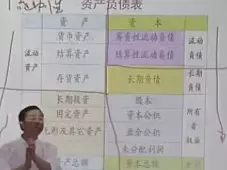 资产负债表
资 产
资 本
货币资产
筹资性流动负债
流动
资产
结算资产
结算性流动负债
流动
负债
存货资产
长期负债
长期
负债
长期投资
股本
固定资产
资本公积
所有
者
权益
无形及其它资产
盈余公积
未分配利润
资产总额
资本总额